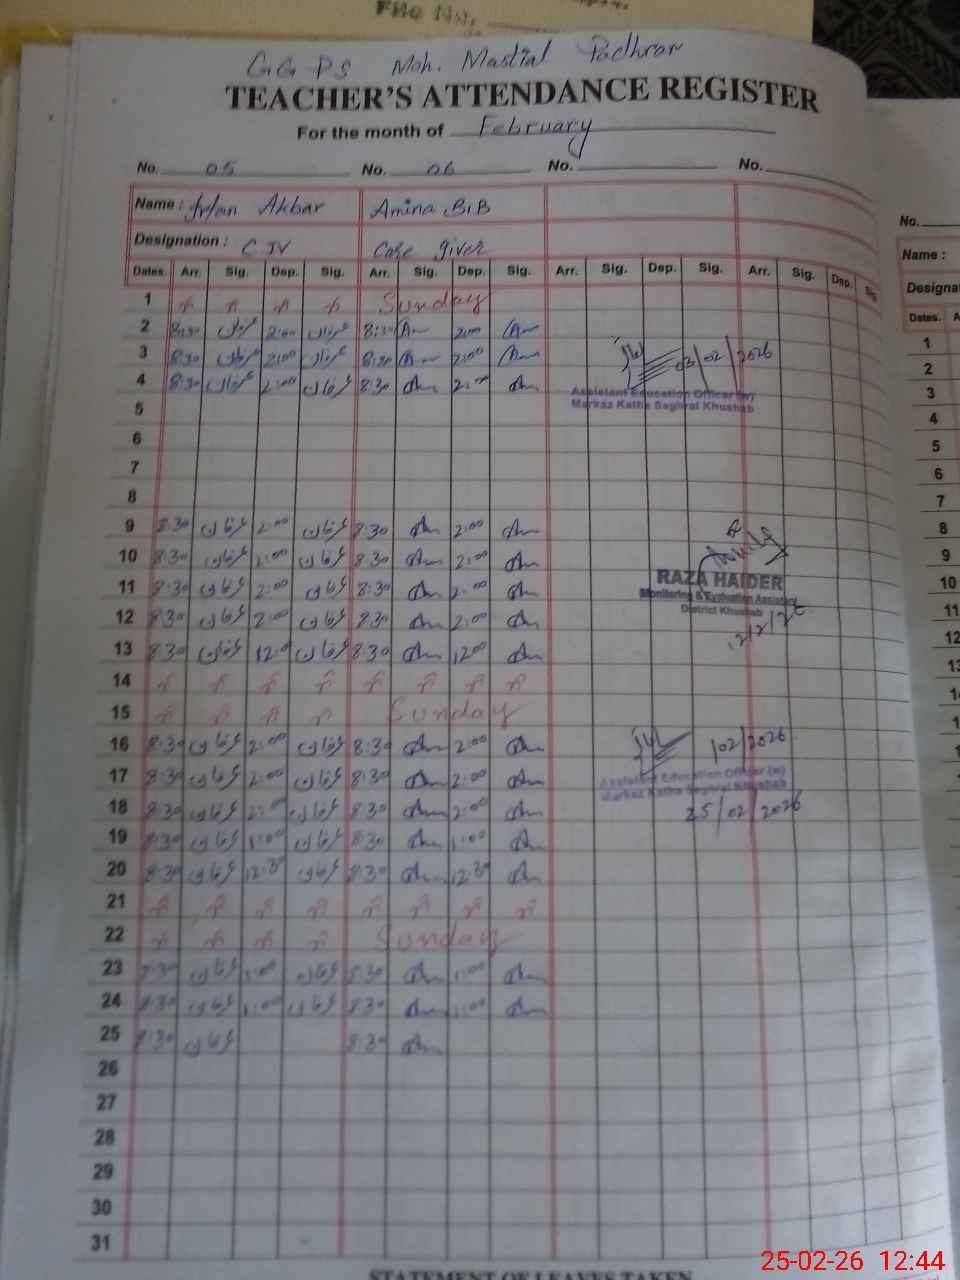 File No.
GGPS Moh. Mastial Padhrar
TEACHER'S ATTENDANCE REGISTER
For the month of February
No. 05 No. 06 No. No.
Name : Irfan Akbar Amina BiB
Designation : C IV Care giver
Dates. Arr. Sig. Dep. Sig. Arr. Sig. Dep. Sig. Arr. Sig. Dep. Sig. Arr. Sig. Dep. Sig
1 Sunday
2 8:30 عرفان 2:00 عرفان 8:30 Am 2:00 Am
3 8:30 عرفان 2:00 عرفان 8:30 Am 2:00 Am 03/02/2026
4 8:30 عرفان 2:00 عرفان 8:30 Am 2:00 Am
Assistant Education Officer (w)
Markaz Katha Saghral Khushab
5
6
7
8
9 8:30 عرفان 2:00 عرفان 8:30 Am 2:00 Am
10 8:30 عرفان 2:00 عرفان 8:30 Am 2:00 Am
11 8:30 عرفان 2:00 عرفان 8:30 Am 2:00 Am
RAZA HAIDER
Monitoring & Evaluation Assistant
District Khushab
12/2/26
12 8:30 عرفان 2:00 عرفان 8:30 Am 2:00 Am
13 8:30 عرفان 12:0 عرفان 8:30 Am 1200 Am
14
15 Sunday
16 8:30 عرفان 2:00 عرفان 8:30 Am 2:00 Am /02/2026
17 8:30 عرفان 2:00 عرفان 8:30 Am 2:00 Am
Assistant Education Officer (w)
Markaz Katha Saghral Khushab
18 8:30 عرفان 2:00 عرفان 8:30 Am 2:00 Am 25/02/2026
19 8:30 عرفان 1:00 عرفان 8:30 Am 1:00 Am
20 8:30 عرفان 12:30 عرفان 8:30 Am 12:30 Am
21
22 Sunday
23 8:30 عرفان 1:00 عرفان 8:30 Am 1:00 Am
24 8:30 عرفان 1:00 عرفان 8:30 Am 1:00 Am
25 8:30 عرفان 8:30 Am
26
27
28
29
30
31
STATEMENT OF LEAVES TAKEN
No.
Name :
Designa
Dates. A
1
2
3
4
5
6
7
8
9
10
11
12
13
25-02-26 12:44